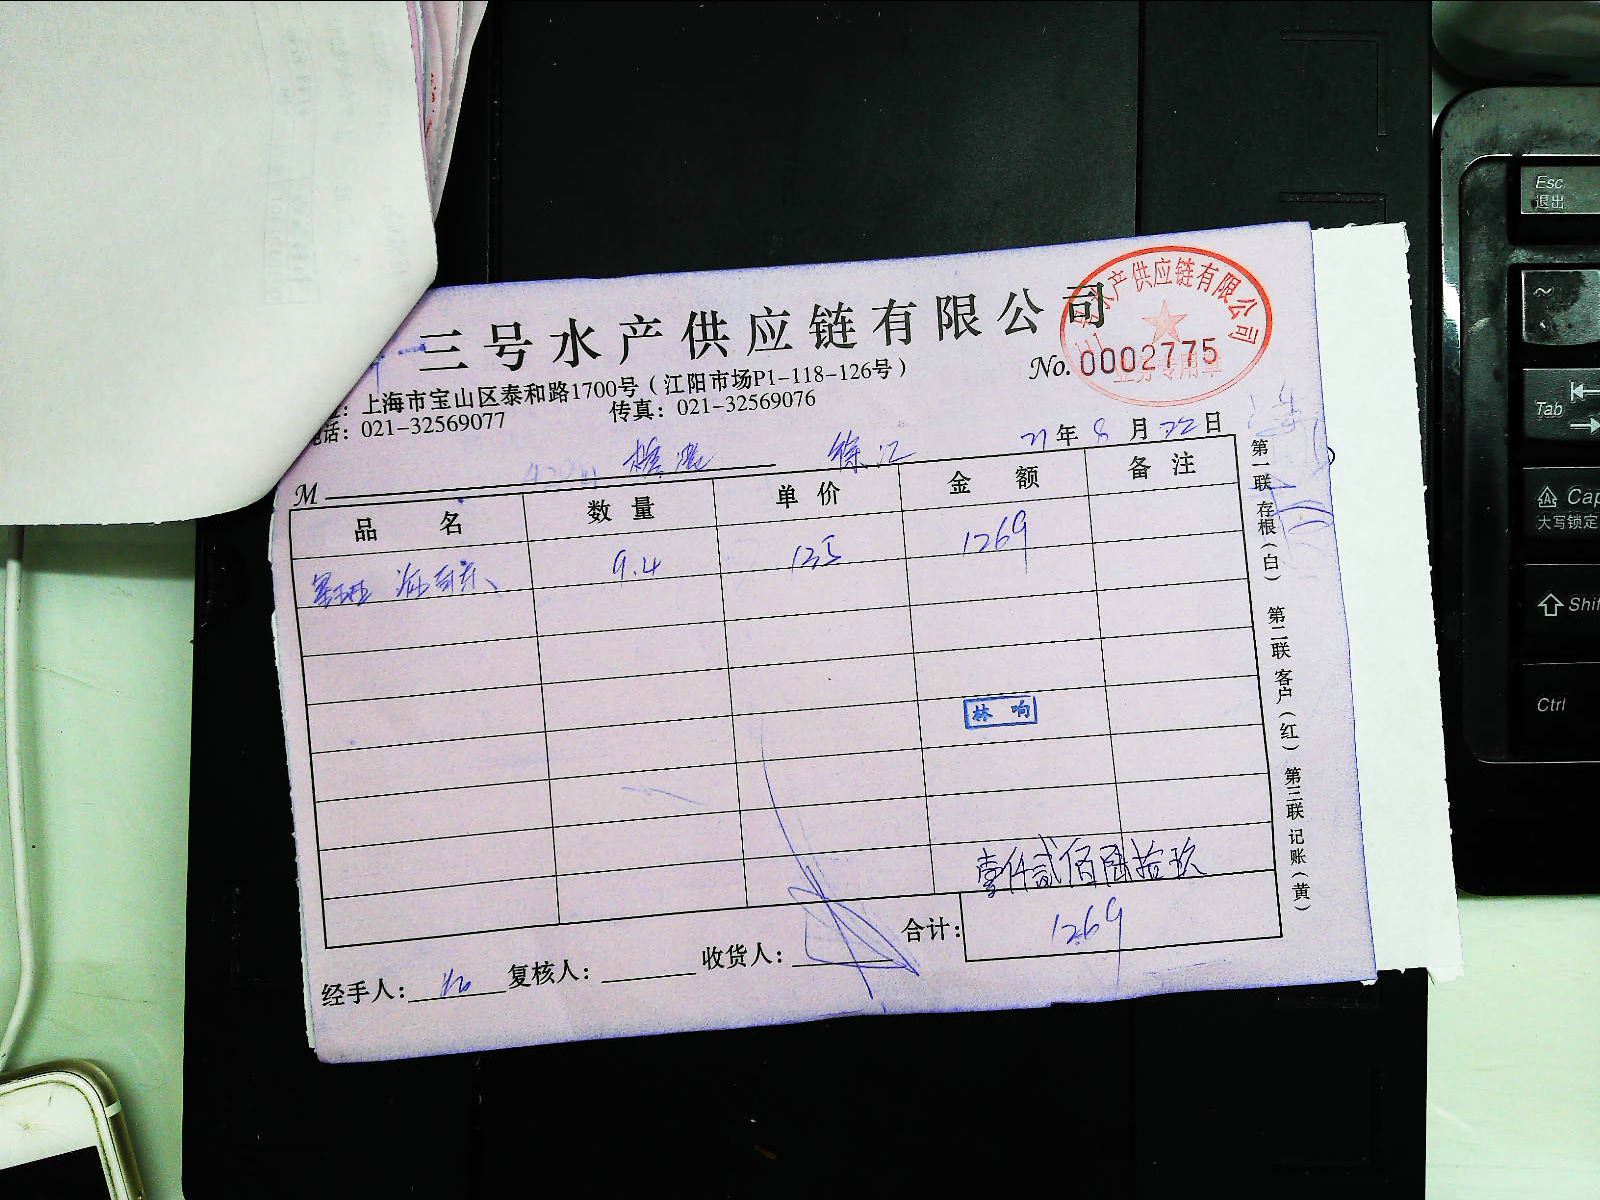 三号水产供应链有限公司
三号水产供应链有限公司
业务专用章
No. 0002775
：上海市宝山区泰和路1700号（江阳市场P1-118-126号）
电话：021-32569077 传真：021-32569076
徐汇 21年8月22日
M
品名 数量 单价 金额 备注
9.4 135 1269
林响
壹仟贰佰陆拾玖
合计： 1269
经手人： 复核人： 收货人：
第一联 存根（白） 第二联 客户（红） 第三联 记账（黄）
Esc
退出
~
Tab
Cap
大写锁定
Shif
Ctrl